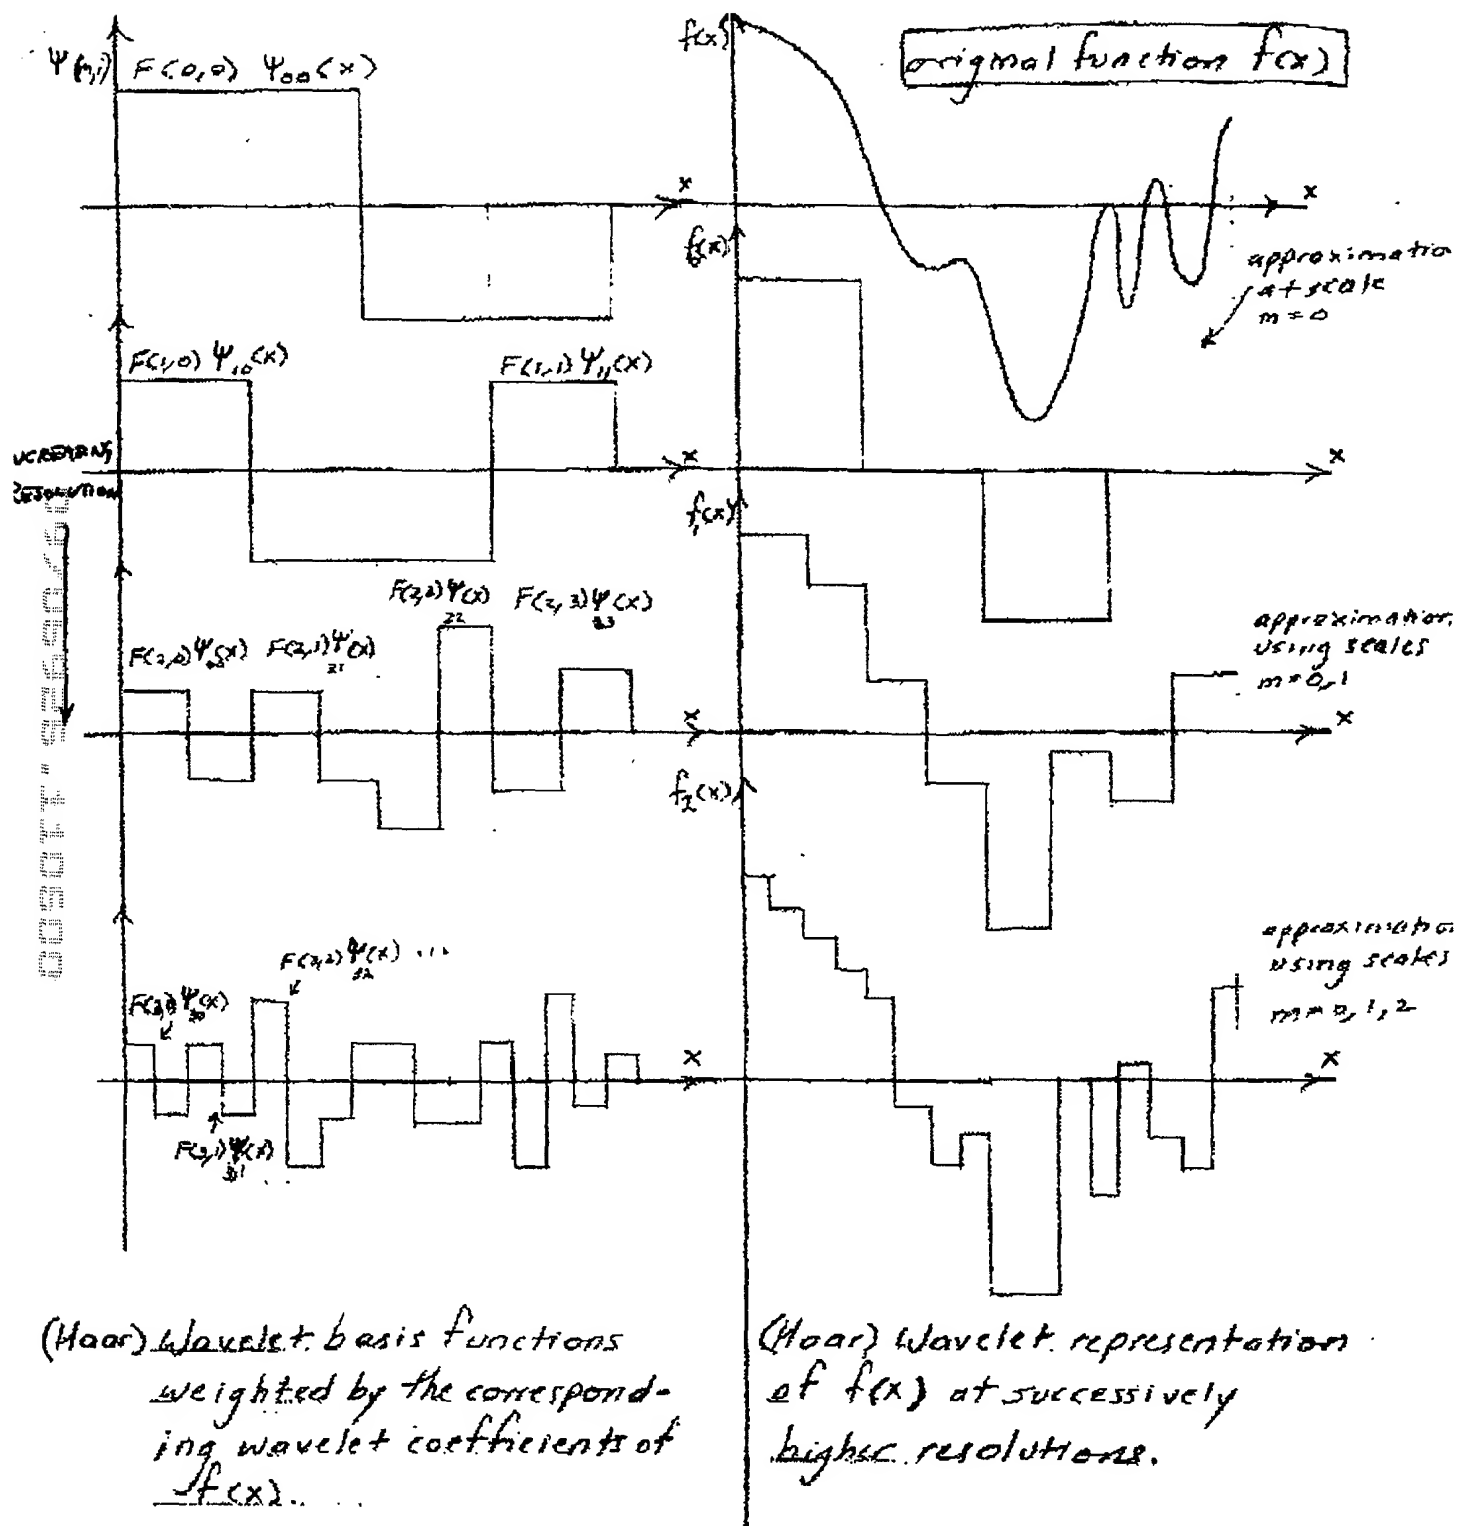 F(0,0) Ψ00(x)
F(1,0) Ψ10(x)
F(1,1) Ψ11(x)
RESOLUTION
F(2,2) Ψ(x)
22
F(2,3) Ψ(x)
23
F(2,1) Ψ(x)
21
F(3,2) Ψ(x) ...
32
F(3,1) Ψ(x)
31
x
x
x
x
(Haar) Wavelet basis functions
weighted by the correspond-
ing wavelet coefficients of
f(x).
f(x)
original function f(x)
x
approximatio
at scale
m = 0
f0(x)
x
f1(x)
approximation
using scales
m = 0, 1
x
f2(x)
approximatio
using scales
m = 0, 1, 2
x
(Haar) Wavelet representation
of f(x) at successively
higher resolutions.